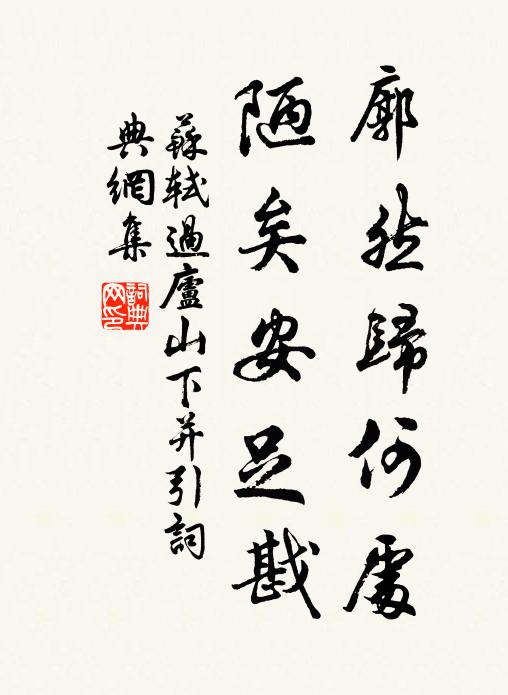 廓然歸何處
陋矣安足戡
蘇軾過廬山下并引詞
典網集
詞典网印